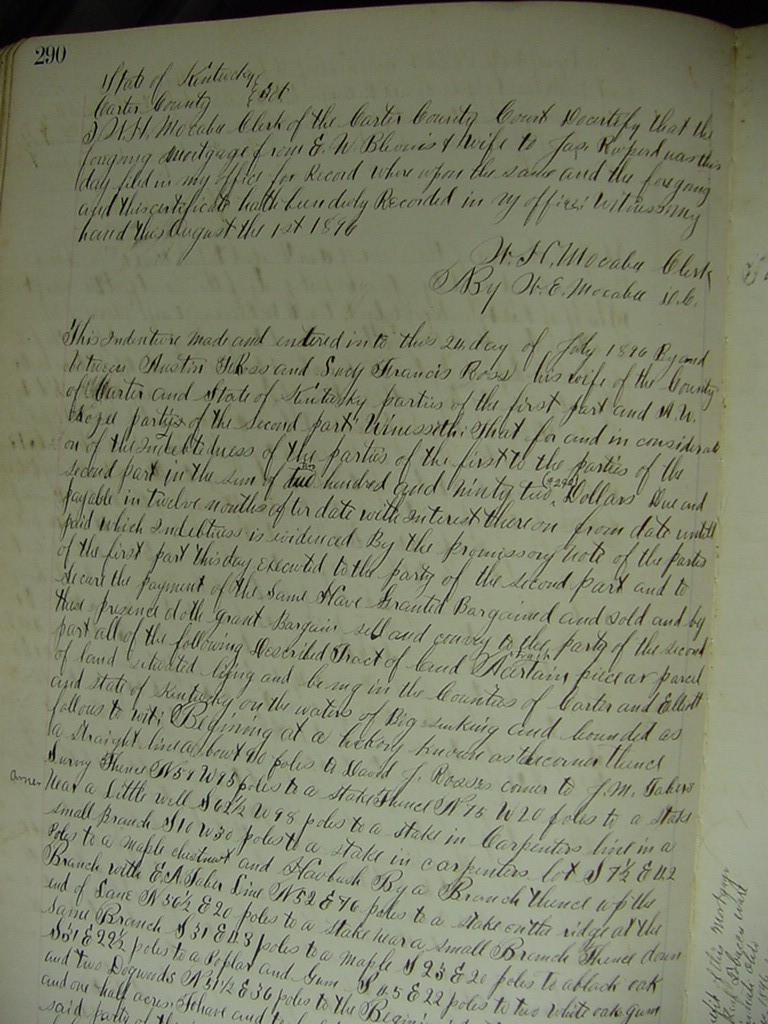 290
State of Kentucky
Carter County Sct
I W.H. Mocabee Clerk of the Carter County Court Do certify that the
foregoing Mortgage from E. W. Blevins & wife to Jas. was this
day filed in my office for Record where upon the same and the foregoing
and this certificate hath been duly Recorded in my office Witness my
hand this August the 1st 1896
W. H. Mocabee Clerk
By W. E. Mocabee D.C.
This Indenture made and entered in to this 24 day of July 1896 By and
between Austin Ross and Lucy Francis Ross his wife of the County
of Carter and State of Kentucky parties of the first part and
party of the second part Witnessith: That for and in considerati
on of the Indebtedness of the parties of the first to the parties of the
second part in the sum of two hundred and ninety two (292) Dollars Due and
payable in twelve months after date with interest there on from date untill
paid which Indebtness is evidenced By the promissory note of the parties
of the first part this day executed to the party of the second part and to
secure the payment of the same Have Granted Bargained and sold and by
these presence doth Grant Bargain sell and convey to the party of the second
part all of the following Described Tract of land A certain tract piece or parcel
of land situated lying and being in the Counties of Carter and Elliott
and state of Kentucky on the waters of Big sinking and bounded as
follows to wit: Begining at a hickory known as the corner thence
a straight line about 90 poles to David J. Rosses corner to J. M. Tabers
Survey Thence N 54 W 95 poles to a stake Thence N 75 W 20 poles to a stake
near a Little well S 62½ W 98 poles to a stake in Carpenters line in a
small Branch S 10 W 30 poles to a stake in carpenters lot S 7½ E 42
poles to a maple chestnut and Hawbush By a Branch thence up the
Branch with E.A. Taber Line N 52 E 76 poles to a stake on the ridge at the
end of Lane N 56½ E 20 poles to a stake near a small Branch Thence down
same Branch S 31 E 43 poles to a maple S 23 E 20 poles to a black oak
S 31 E 22½ poles to a Poplar and Gum S 45 E 22 poles to two white oaks gum
and two Dogwoods N 31½ E 36 poles to the Begining
and one half acres To have and to
said party of the